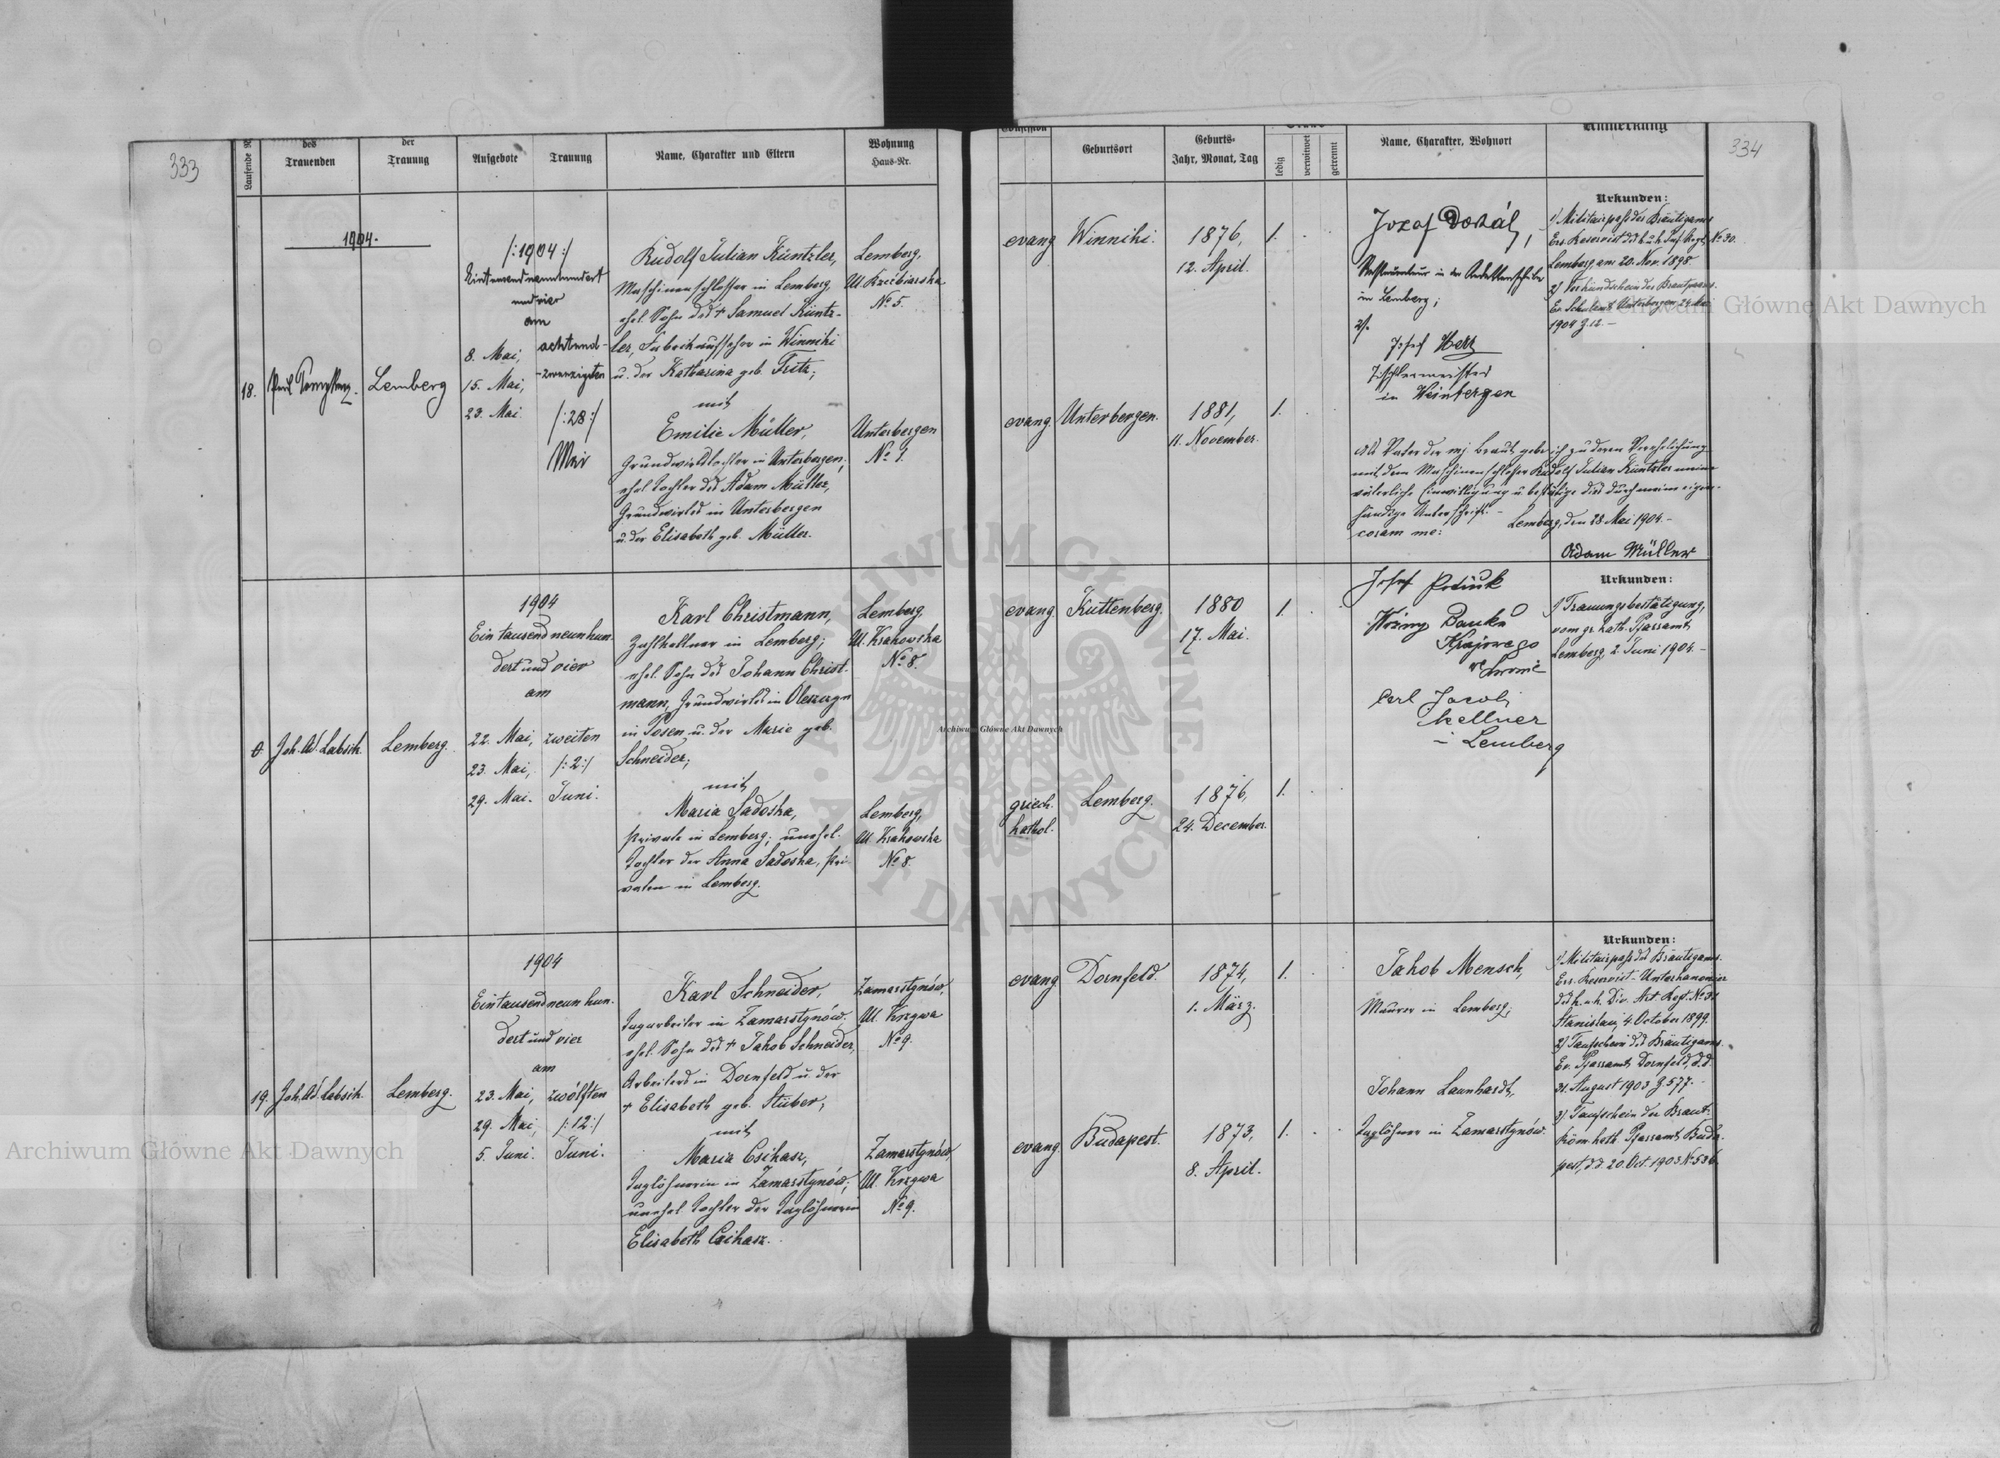 333
Laufende
des
Trauenden
der
Trauung
Aufgebote
Trauung
Name, Charakter und Eltern
Wohnung
Haus-Nr.
1904.
18.
Lemberg
8. Mai,
15. Mai,
23. Mai
/:1904:/
Eintausendneunhundert
und vier
am
achtund-
-zwanzigsten
/:28:/
Mai
Rudolf Julian Küntzler,
Maschinenschlosser in Lemberg,
ehel. Sohn des † Samuel Küntz-
ler, Fabriksaufseher in Winniki
u. der Katharina geb. Fritz,
mit
Emilie Müller,
Grundwirtstochter in Unterbergen,
ehel. Tochter des Adam Müller,
Grundwirtes in Unterbergen
u. der Elisabeth geb. Müller.
Lemberg,
Ul.
No 5.
Unterbergen
No 1.
Joh. Ad. Labsik
Lemberg.
1904
Ein tausend neun hun-
dert und vier
am
22. Mai,
23. Mai,
29. Mai.
zweiten
/:2:/
Juni.
Karl Christmann,
Zahlkellner in Lemberg;
ehel. Sohn des Johann Christ-
mann, Grundwirtes in
in Posen u. der Marie geb.
Schneider;
mit
Maria Sadoska,
Private in Lemberg; unehel.
Tochter der Anna Sadoska, Pri-
vaten in Lemberg.
Lemberg,
Ul. Krakowska
No 8.
Lemberg,
Ul. Krakowska
No 8
19.
Joh. Ad. Labsik.
Lemberg.
1904
Ein tausend neun hun-
dert und vier
am
23. Mai,
29. Mai,
5. Juni.
zwölften
/:12:/
Juni.
Karl Schneider,
Tagarbeiter in Zamarstynów
ehel. Sohn des † Jakob Schneider,
Arbeiters in Dornfeld u. der
† Elisabeth geb. Stuber;
mit
Maria Csihasz,
Taglöhnerin in Zamarstynów;
unehel. Tochter der Taglöhnerin
Elisabeth Csihasz.
Zamarstynów,
Ul. Krzywa
No 9.
Zamarstynów,
Ul. Krzywa
No 9.
334
Confession
Geburtsort
Geburts-
Jahr, Monat, Tag
Stand
ledig
verwitwet
getrennt
Name, Charakter, Wohnort
Anmerkung
evang
Winniki.
1876,
12. April.
1.
evang.
Unterbergen.
1881,
11. November.
1.
Jozef
in Lemberg;
2/.
Josef Herz
Tischlermeister
in Weinbergen
Urkunden:
1) Militairpass des Bräutigams
Lemberg am 20. Nov. 1898
2) Verkündschein des Brautpaares
Ev. Schulamt Unterbergen, 24. Mai
1904 Z. 12.-
Als Vater der mj. Braut gebe ich zu deren Verehelichung
mit dem Maschinenschlosser Rudolf Julian Küntzler meine
väterliche Einwilligung u. bestätige dies durch meine eigen-
händige Unterschrift.-
Lemberg, den 28 Mai 1904.-
coram me:
Adam Müller
evang.
Kuttenberg.
1880
17. Mai.
1.
griech.
kathol.
Lemberg.
1876,
24. December.
1.
Josef
Woźny Banku
Krajowego
Carl Jacob
Kellner
in Lemberg
Urkunden:
1) Trauungsbestätigung,
vom gr. kath. Pfarramt
Lemberg, 2. Juni 1904.-
evang
Dornfeld.
1874,
1. März.
1.
evang.
Budapest.
1873,
8. April.
1.
Jakob Mensch,
Maurer in Lemberg;
Johann Launhardt,
Taglöhner in Zamarstynów.
Urkunden:
1) Militairpass des Bräutigams.
Ers. Reservist-Unterkanonier
des k. u. k. Div. Art. Regt. No 31
Stanislau, 4. October 1899.
2) Taufschein des Bräutigams.
Ev. Pfarramt Dornfeld, d.d.
31. August 1903 Z. 577.-
3) Taufschein der Braut:
Röm. kath. Pfarramt Buda-
pest, d.d. 20. Oct. 1903 No 536.
Archiwum Główne Akt Dawnych
Archiwum Główne Akt Dawnych
Archiwum Główne Akt Dawnych